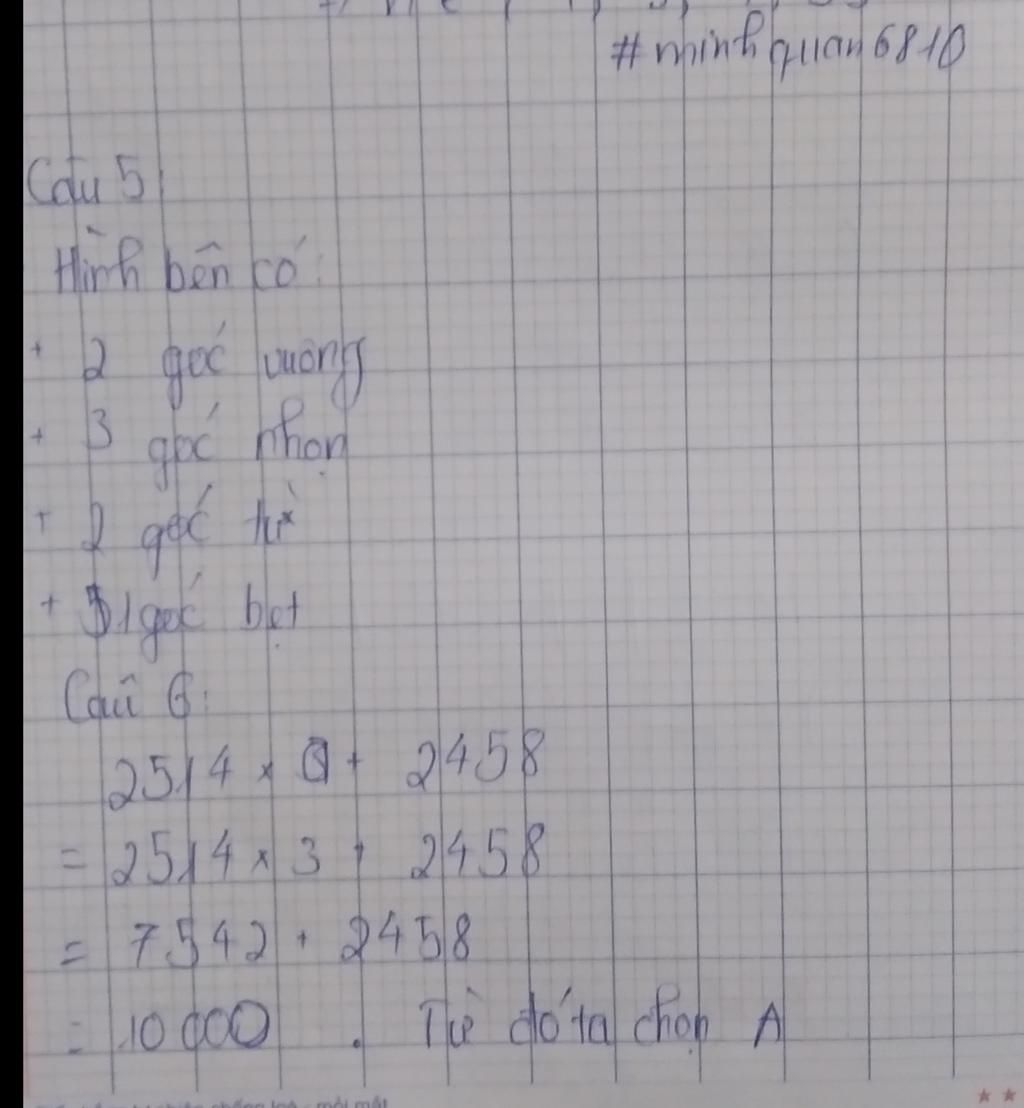 #minhquan6810
Câu 5
Hình bên có:
+ 2 góc vuông
+ 3 góc nhọn
+ 2 góc tù
+ 1 góc bẹt
Câu 6:
2514 x a + 2458
= 2514 x 3 + 2458
= 7542 + 2458
= 10 000 . Từ đó ta chọn A